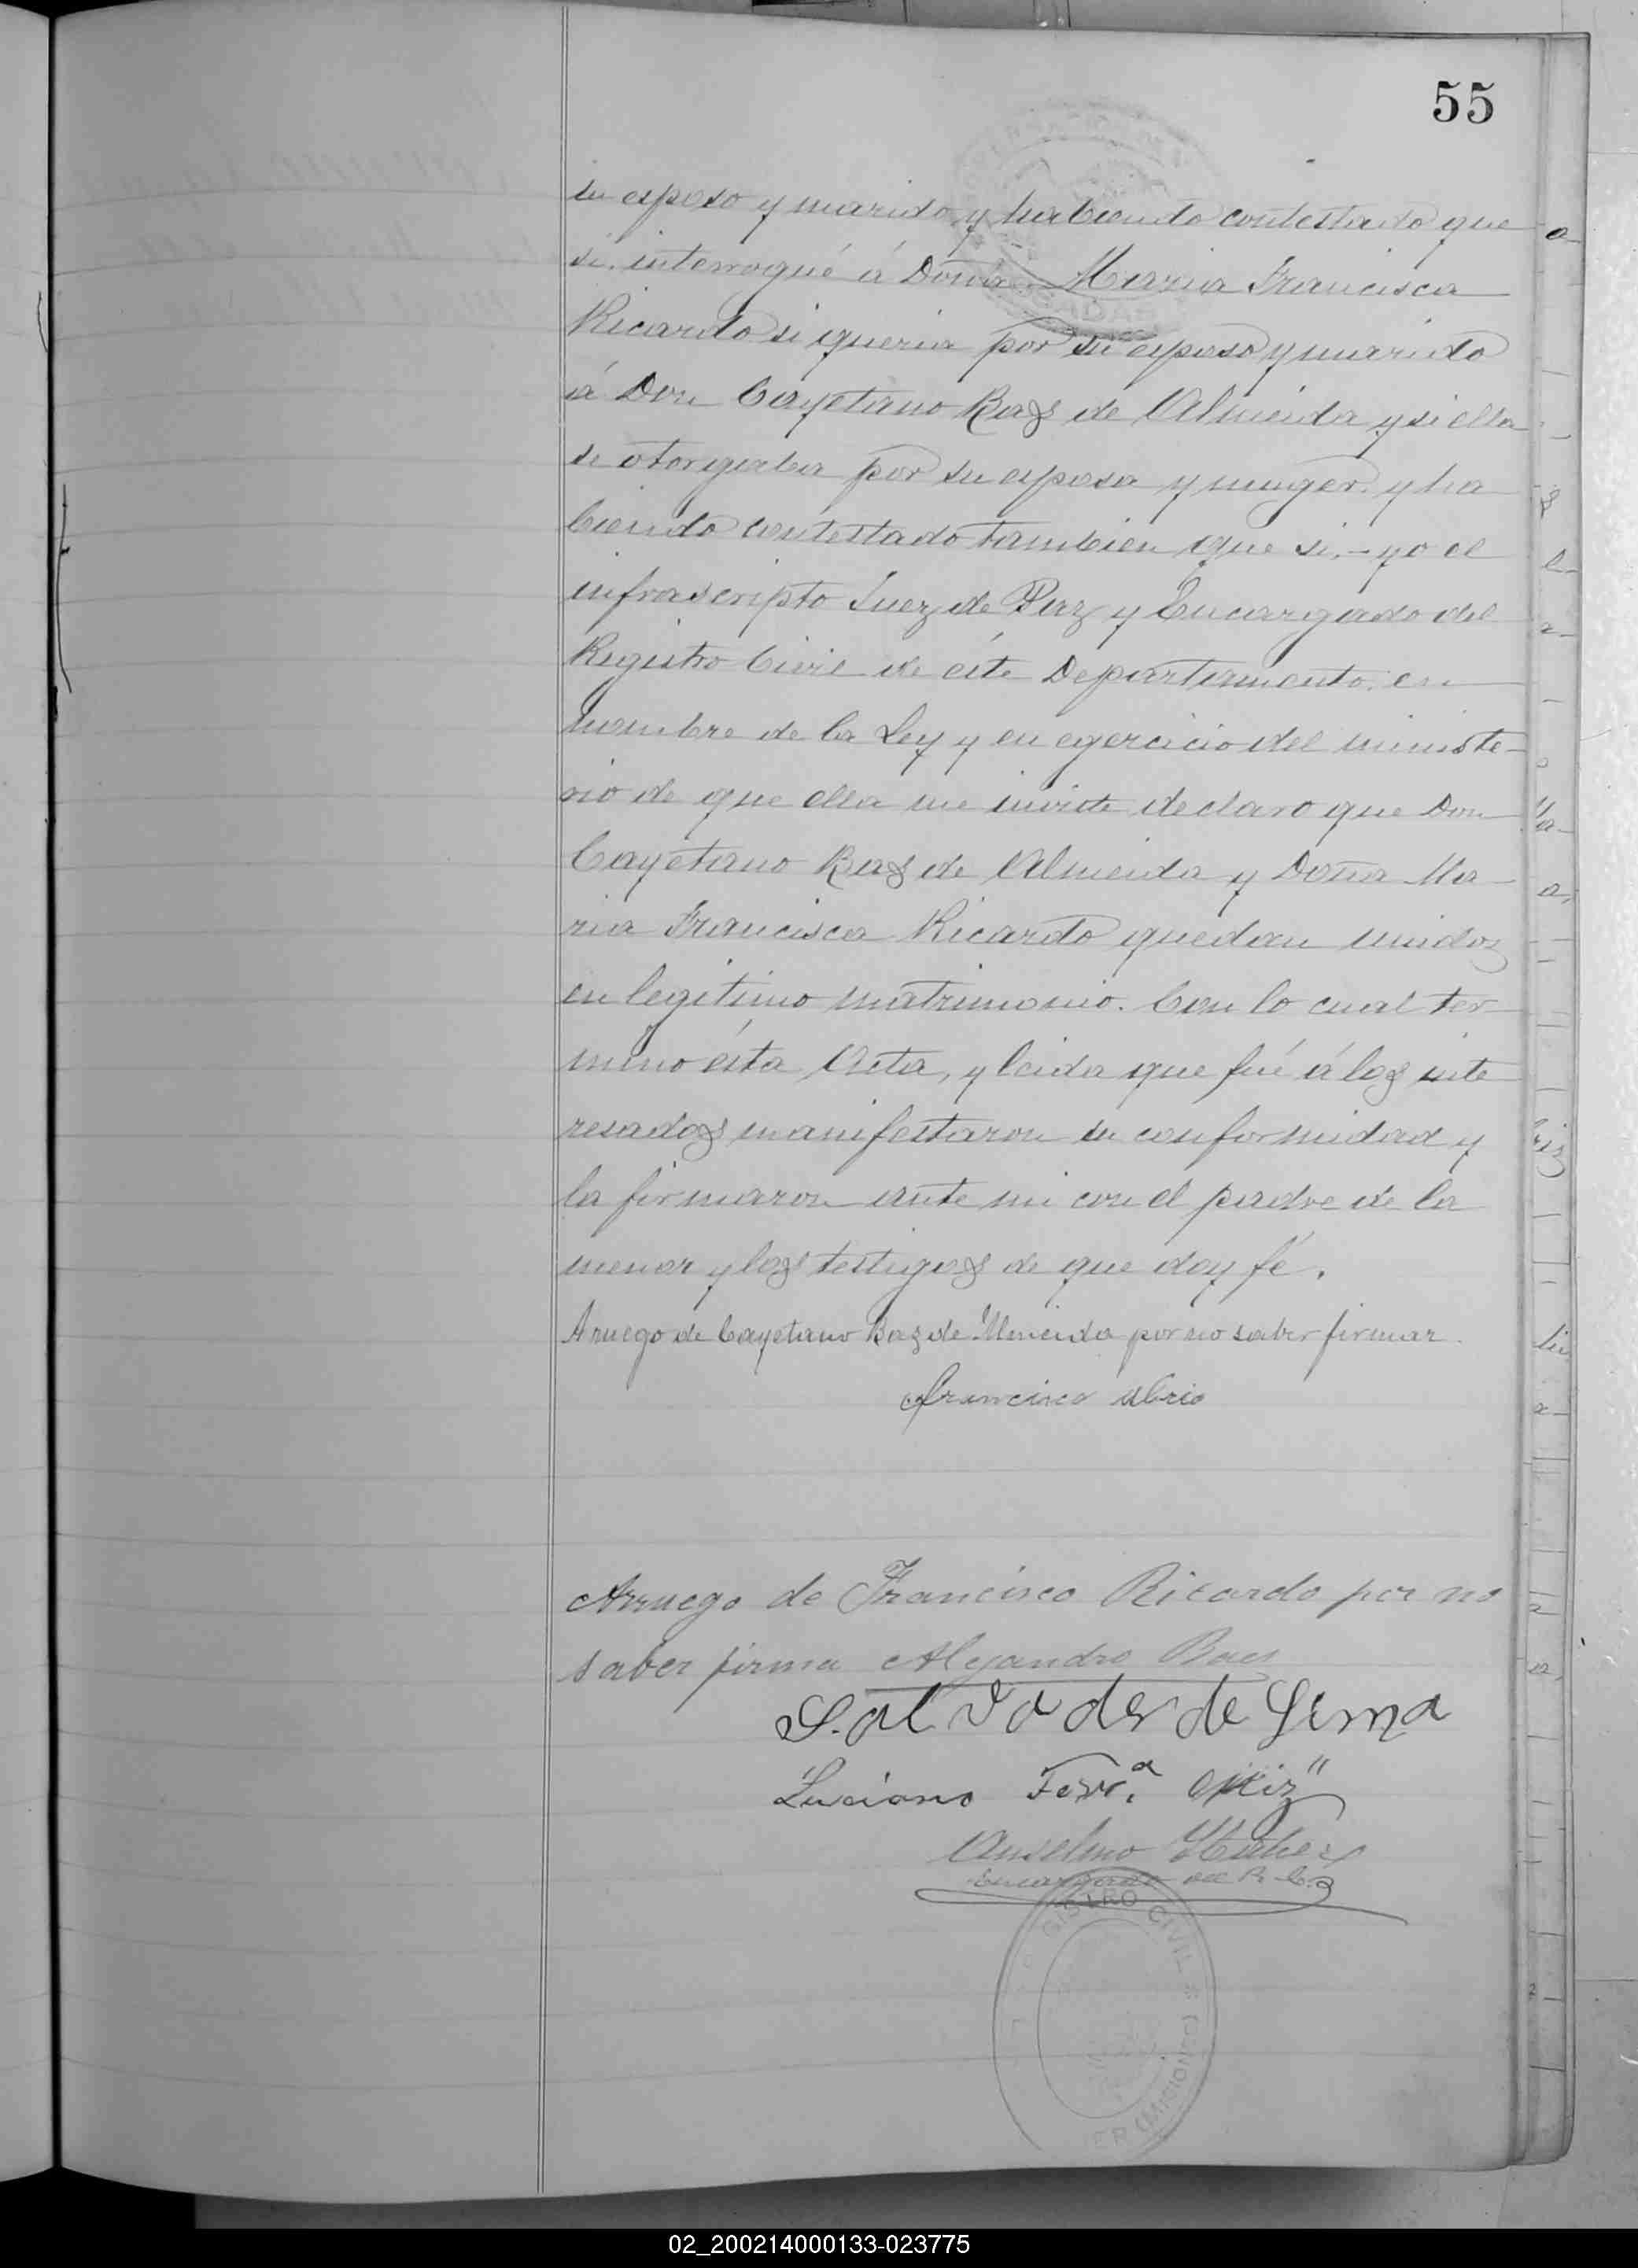 55
su esposo y marido y habiendo contestado que
si. interrogué á Doña Maria Francisca
Ricardo si queria por su esposo y marido
á Don Cayetano Baz de Almeida y si ella
se otorgaba por su esposa y muger. y ha
biendo contestado tambien que si. - yo el
infrascripto Juez de Paz y Encargado del
Registro Civil de éste Departamento. en
nombre de la Ley y en egercicio del ministe-
rio de que ella me inviste declaro que Don
Cayetano Baz de Almeida y Doña Ma-
ria Francisca Ricardo quedan unidos
en legitimo matrimonio. Con lo cual ter
minó ésta Acta, y leida que fué á los inte
resados manifestaron su conformidad y
la firmaron ante mi con el padre de la
menor y los testigos de que doy fé.
A ruego de Cayetano Baz de Almeida por no saber firmar
Francisco
Arruego de Francisco Ricardo por no
saber firma Alejandro Baes
Salvador de Lima
Luciano Ferr.a
Anselmo
Encargado del R. C.
REGISTRO CIVIL
(MICIONES)
02_200214000133-023775